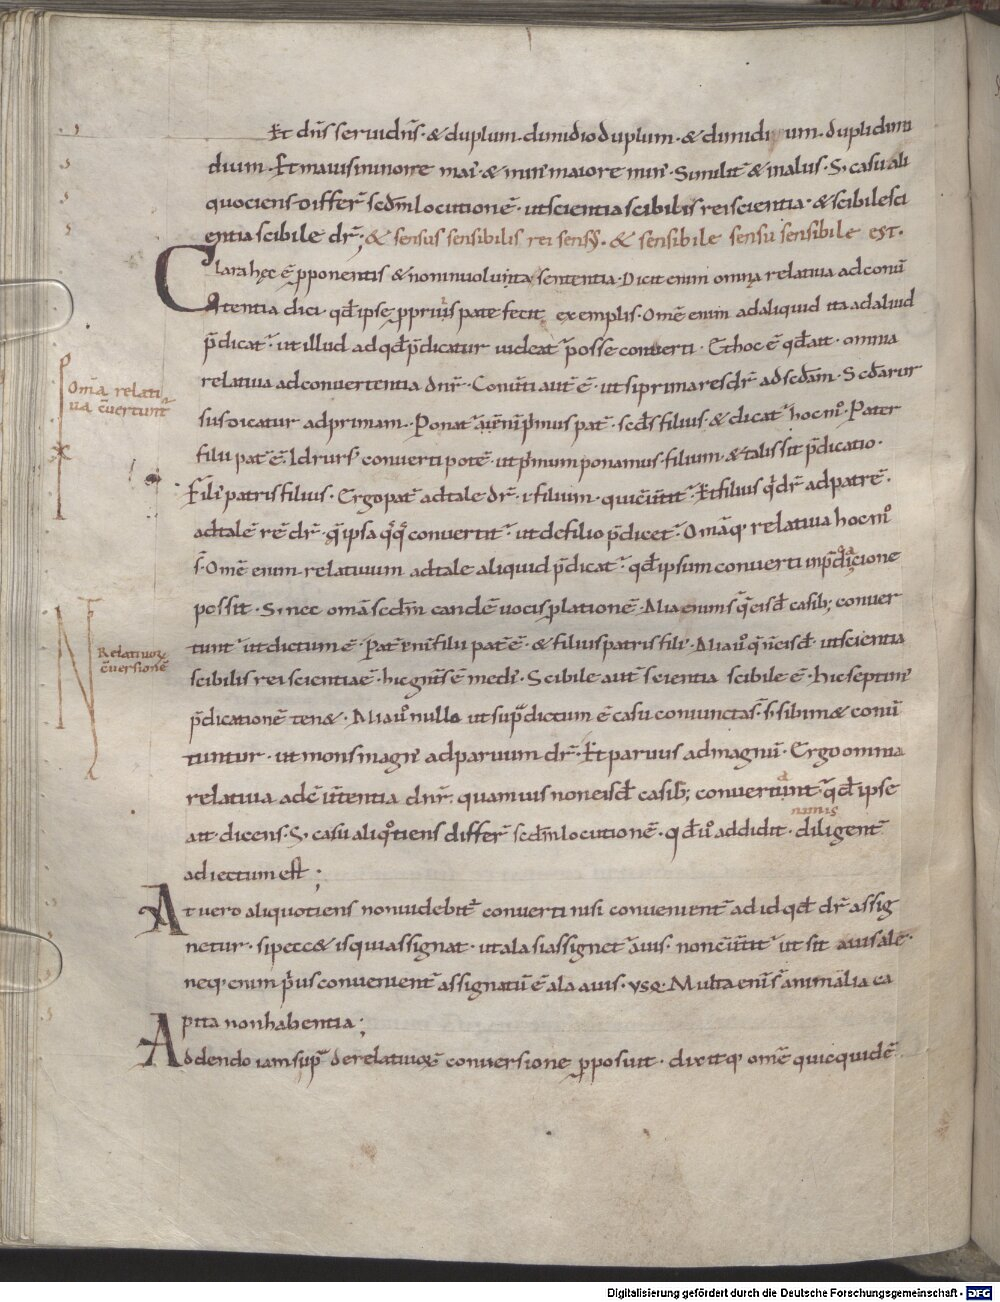 Et dn̄s serui dn̄s · & duplum dimidio duplum · & dimidium · dupli dimi
dium · Et maius minore mai᾽ & min᾽ maiore min᾽ · Similit̄ & in aliis · S; casu ali
quociens differ̄ scdm̄ locutionē · ut scientia scibilis rei scientia · & scibile sci
entia scibile dr̄; & sensus sensibilis rei sensꝰ · & sensibile sensu sensibile est ·
Clara hęc ē p̱ponentis & non inuoluta sententia · Dicit enim omnia relatiua ad conū
tentia dici · qd̄ ipse p̱prius patefecit exemplis · Omē enim ad aliquid ita ad aliud
p̄dicat᾽ · ut illud ad qd̄ p̄dicatur uideat᾽ posse conuerti · Et hoc ē qd̄ ait · omnia
relatiua ad conuertentia dn̄r · Conūti aut̄ ē · ut si prima res dr̄ ad scdam̄ · Scda rur
sus dicatur ad primam · Ponat᾽ enī p̄mus pat̄ · scds̄ filius · & dicat᾽ hoc mº · Pater
filii pat̄ ē · ld rurs᾽ conuerti potē · ut p̄mum ponamus filium · & talis sit p̄dicatio ·
Fili᾽ patris filius · Ergo pat̄ ad tale dr̄ · i filium · qui cūtit᾽ · Et filius qd̄ dr̄ ad patrē ·
ad talē rē dr̄ · quę ipsa qºqº conuertit᾽ · ut de filio p̄dicet᾽ · Omāq; relatiua hoc mº
s̄ · Omē enim relatiuum ad tale aliquid p̄dicat᾽ · qd̄ ipsum conuerti in p̄dicatione
possit · S; nec omā scdm̄ eandē uocis p̱lationē · Alia enim s̄ quę eisd̄ casib; conuer
tunt᾽ ut dictum ē · Pat̄ enī filii pat̄ ē · & filius patris fili᾽ · Alia uº quę n̄ eisd̄ · ut scientia
scibilis rei scientia ē · hic gnt̄s ē medi᾽ · Scibile aut̄ scientia scibile ē · hic septim᾽
p̄dicationē ten& · Alia uº nullo ut supᵃ dictum ē casu coniuncta s̄ · s; sibim& conū
tuntur · ut mons magn᾽ ad paruum dr̄ · Et paruus ad magnū · Ergo omnia
relatiua ad cūtentia dn̄r · quamuis non eisd̄ casib; conuertant᾽ qd̄ ipse
nimis
ait dicens · S; casu aliqºtiens differ̄ scdm̄ locutionē · qd̄ uº addidit · diligent̄
adiectum est;
At uero aliquotiens non uidebit᾽ conuerti nisi conuenient̄ ad id qd̄ dr̄ assig
netur · si pecc& is qui assignat · ut ala si assignet᾽ auis · non cūtit᾽ ut sit auis alę ·
neq; enim p̄us conuenient̄ assignatū ē ala auis · ysq; Multa enī s̄ animalia ca
pita non habentia;
Addendo iam supᵃ de relatiuoꝝ conuersione p̱posuit · dixitq; omē quicquid ē
Omā relati
ua cūertunt᾽
Relatiuoꝝ
cūersionē
Digitalisierung gefördert durch die Deutsche Forschungsgemeinschaft - DFG